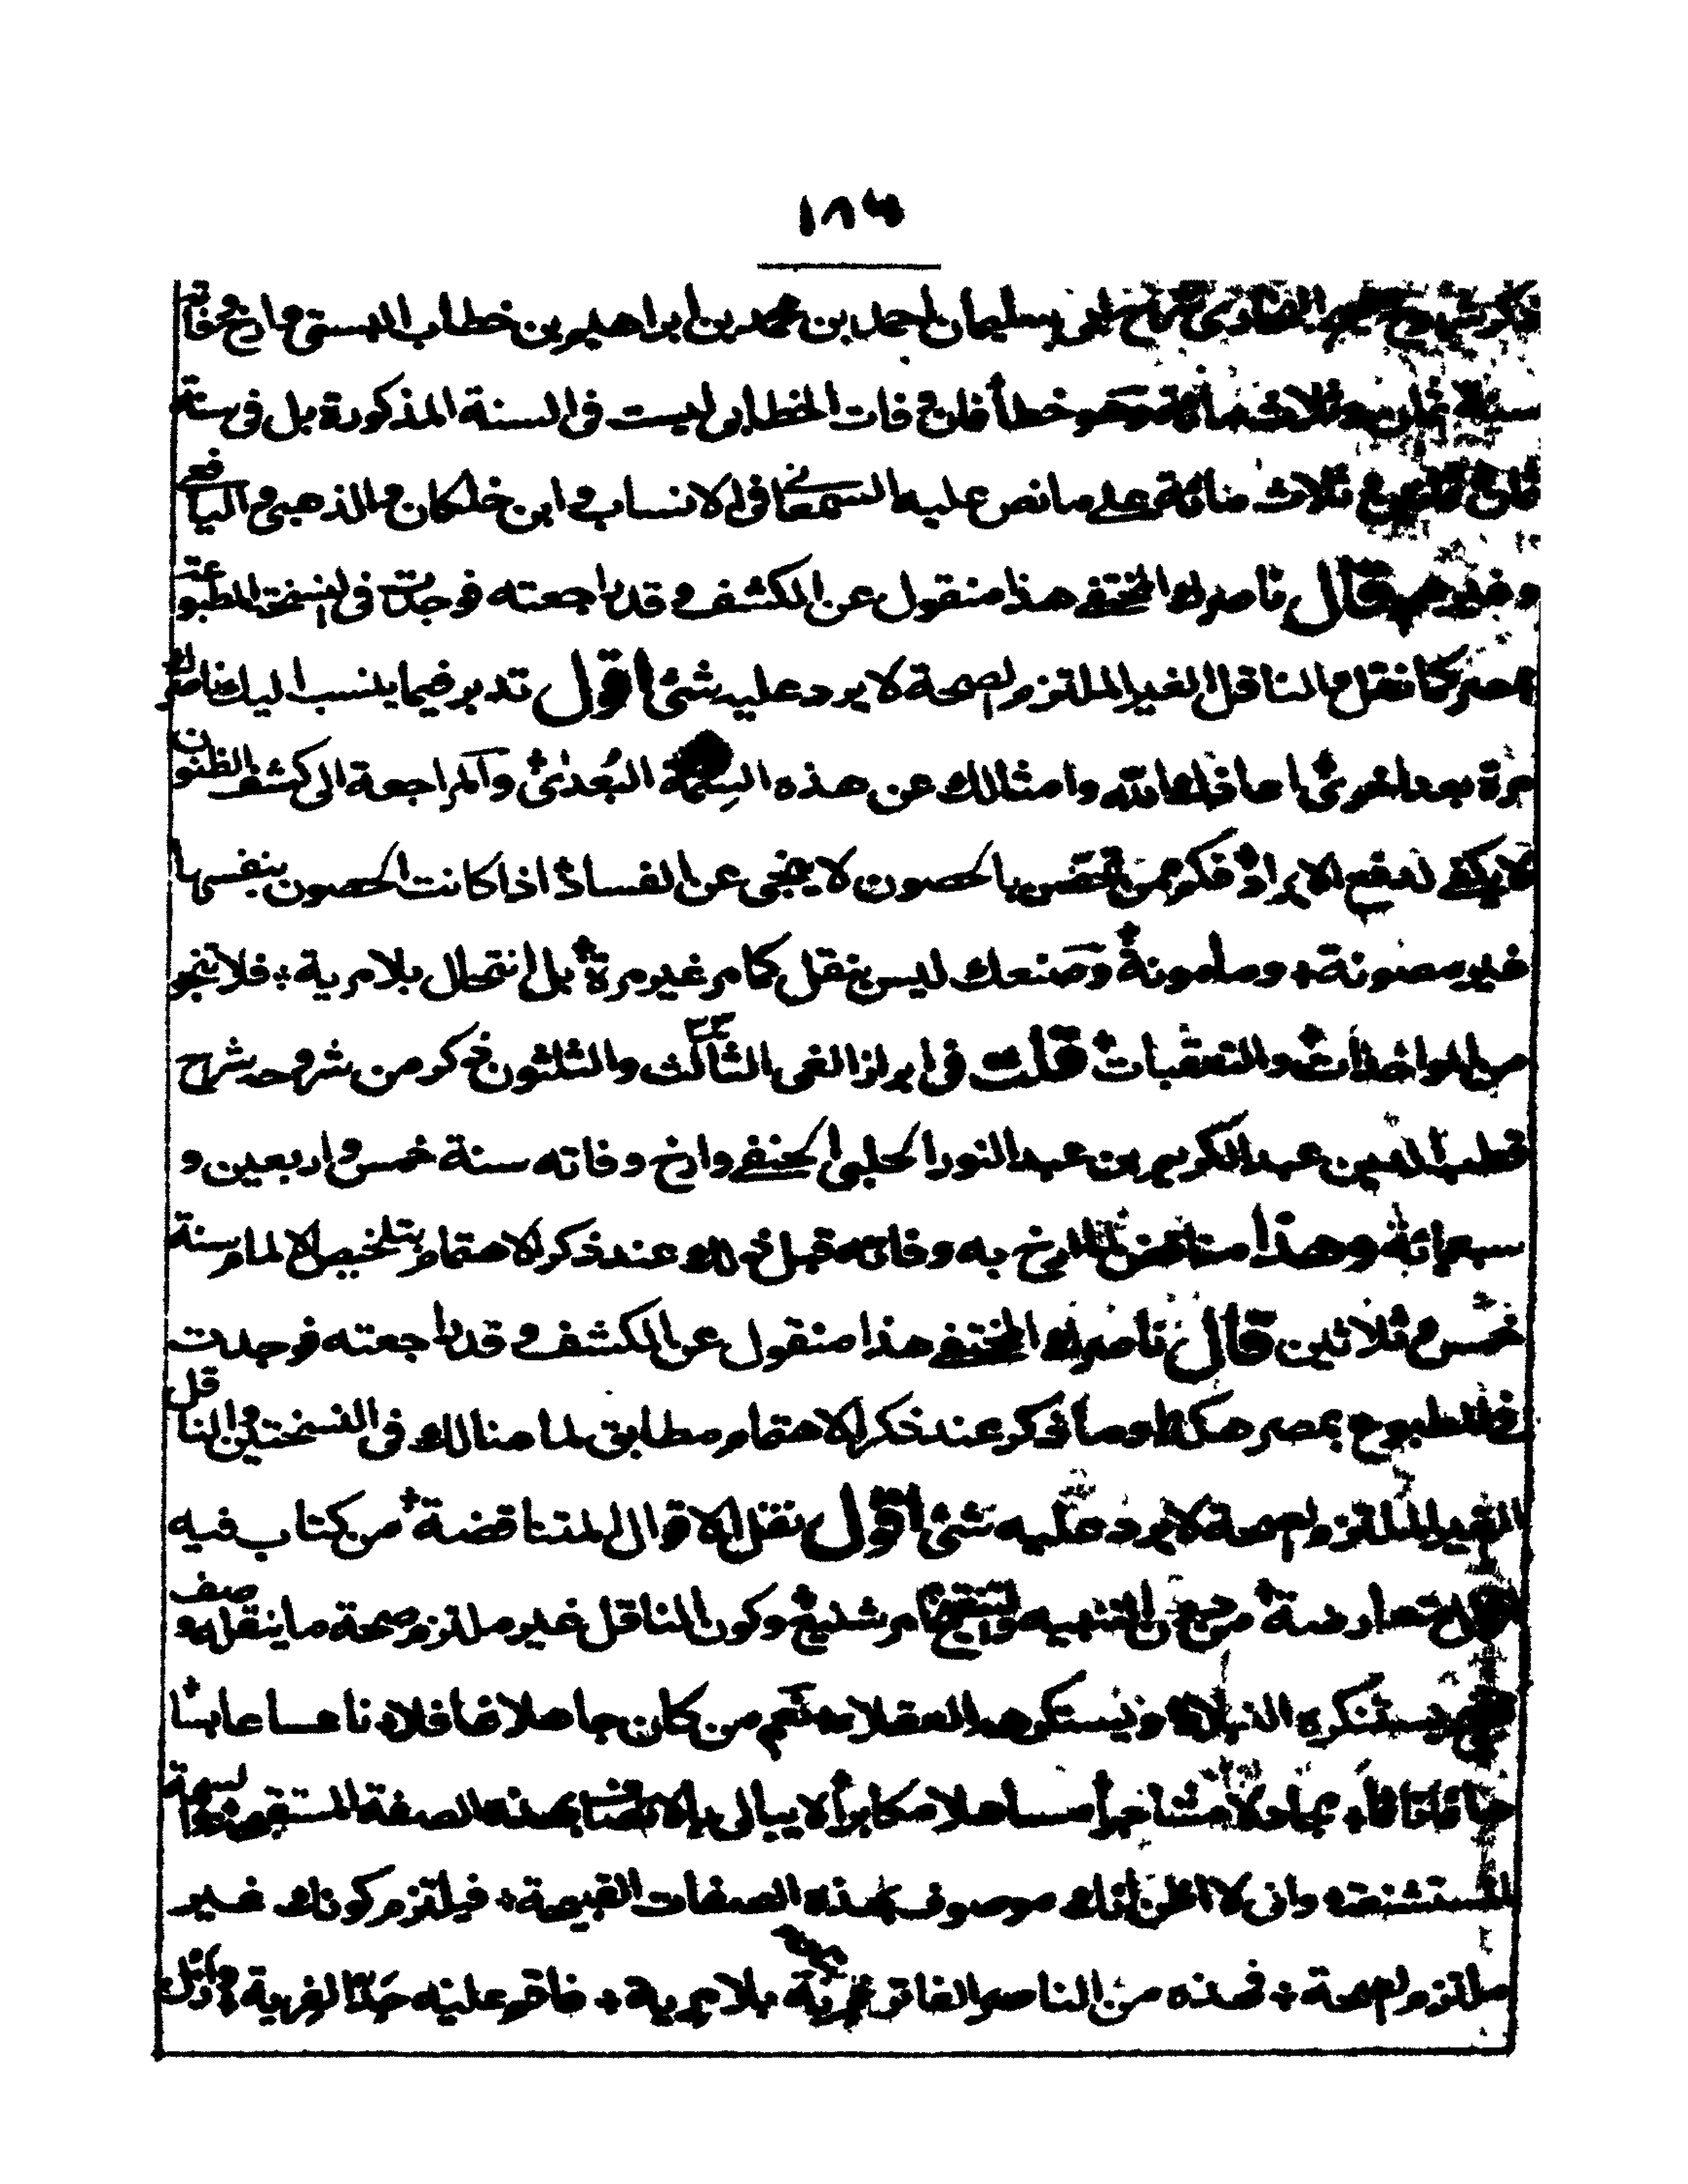 ١٨٤
ذكر شروح صحيح البخارى شرح ابى سليمان احمد بن محمد بن ابراهيم بن خطاب البستى وارخ وفاته
سنة ثمان وثلاث مائة وهو خطأ فان وفات الخطابى ليست فى السنة المذكورة بل فى سنة
ثمان وثمانين وثلاث مائة على ما نص عليه السمعانى فى الانساب وابن خلكان والذهبى واليافعى
وغيرهم قال ناصرك المختفى هذا منقول عن الكشف وقد راجعته فوجدت فى النسخة المطبوعة
بمصر كما نقل والناقل الغير الملتزم لصحة لا يرد عليه شئ اقول تدبر فيما ينسب اليك ناصرك
مرة بعد اخرى يا عافاك الله وامثالك عن هذه السمة البعدى وآلمراجعة الى كشف الظنون
لا يكفى لدفع الايراد فكم من تحصن بالحصون لا ينجى عن الفساد اذا كانت الحصون بنفسها
غير مصونة ومأمونة وصنعك ليس بنقل كما مر غير مرة بل انتحال بلا مرية فلا تنجو
من المواخذات والتعقبات قلت فى ابراز الغى الثالث والثلثون ذكر من شروحه شرح
قطب الدين عبد الكريم بن عبد النور الحلبى الحنفى وارخ وفاته سنة خمس واربعين و
سبعمائة وهذا مناقض لما ارخ به وفاته قبل ذلك عند ذكر الاهتمام بتلخيص الالمام سنة
خمس وثلاثين قال ناصرك المختفى هذا منقول عن الكشف وقد راجعته فوجدت
فى المطبوع بمصر هكذا وما ذكر عند ذكر الاهتمام مطابق لما هنالك فى النسختين والناقل
الغير الملتزم لصحة لا يرد عليه شئ اقول نقل الاقوال المتناقضة من كتاب فيه
تعارضة من دون التنبيه والتنقيح امر شنيع وكون الناقل غير ملتزم صحة ما ينقله وصف
يستنكره النبلاء ويستكرهه العقلاء نعم من كان جاهلا غافلا ناعسا عابثا
مجادلا مشاجرا متساهلا مكابرا لا يبالى بالاتصاف بهذه الصفة المستقبحة والسمة
المستشنعة وانى لا اظن انك موصوف بهذه الصفات القبيحة فيلتزم كونك غير
ملتزم لصحة فهذه من الناصر الفاتر فرية بلا مرية فاقم عليه حد الفرية